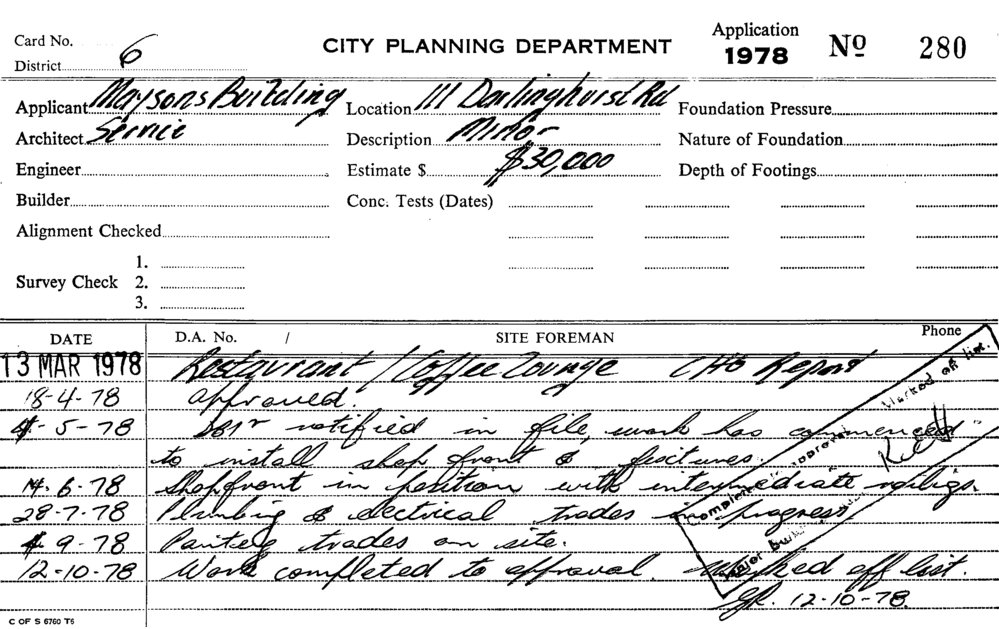 Card No. 6 CITY PLANNING DEPARTMENT Application 1978 Nº 280
District
Applicant Maysons Building Location 111 Darlinghurst Rd Foundation Pressure
Architect Service Description Minor Nature of Foundation
Engineer Estimate $ $30,000 Depth of Footings
Builder Conc. Tests (Dates)
Alignment Checked
Survey Check 1.
2.
3.
DATE D.A. No. / SITE FOREMAN Phone
13 MAR 1978 Restaurant / Coffee Lounge CHO Report
18-4-78 approved.
4-5-78 notified in file, work has commenced
to install shop front & fixtures.
14.6.78 Shopfront in position with intermediate
28.7.78 Plumbing & electrical trades in progress
4 9-78 trades on site.
12-10-78 Work completed to approval. Marked off list.
12-10-78.
Marked off list.
C OF S 6760 T6